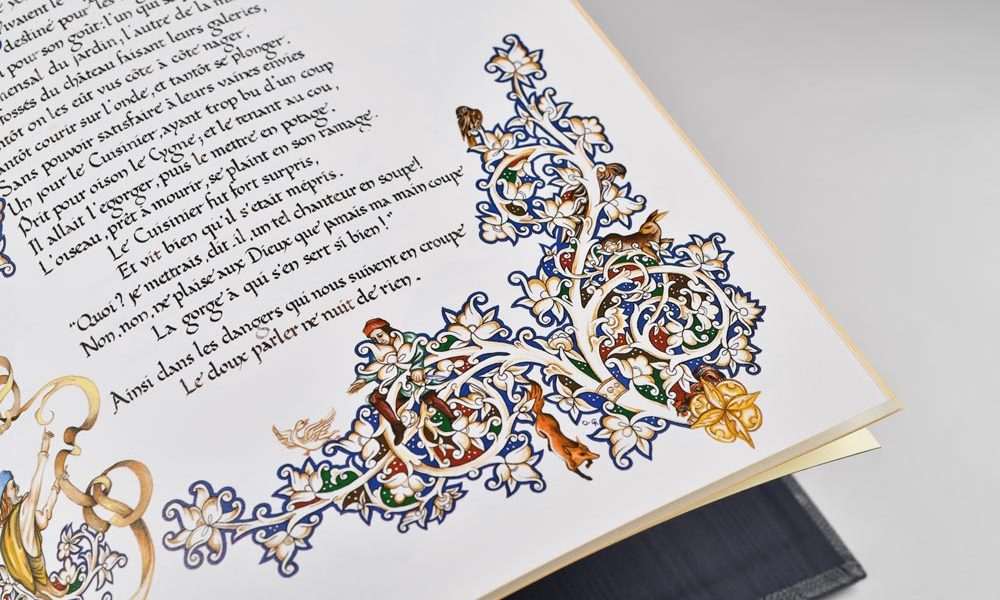 vivaient le
destiné pour les
pour son goût: l'un qui se
mensal du jardin; l'autre de la mai
fossés du château faisant leurs galeries,
tôt on les eût vus côte à côte nager,
antôt courir sur l'onde, et tantôt se plonger,
Sans pouvoir satisfaire à leurs vaines envies
Un jour le Cuisinier, ayant trop bu d'un coup
Prit pour oison le Cygne; et le tenant au cou,
Il allait l'égorger, puis le mettre en potage.
L'oiseau, prêt à mourir, se plaint en son ramage.
Le Cuisinier fut fort surpris,
Et vit bien qu'il s'était mépris.
"Quoi? je mettrais, dit-il, un tel chanteur en soupe!
Non, non, ne plaise aux Dieux que jamais ma main coupe
La gorge à qui s'en sert si bien!"
Ainsi dans les dangers qui nous suivent en croupe
Le doux parler ne nuit de rien.